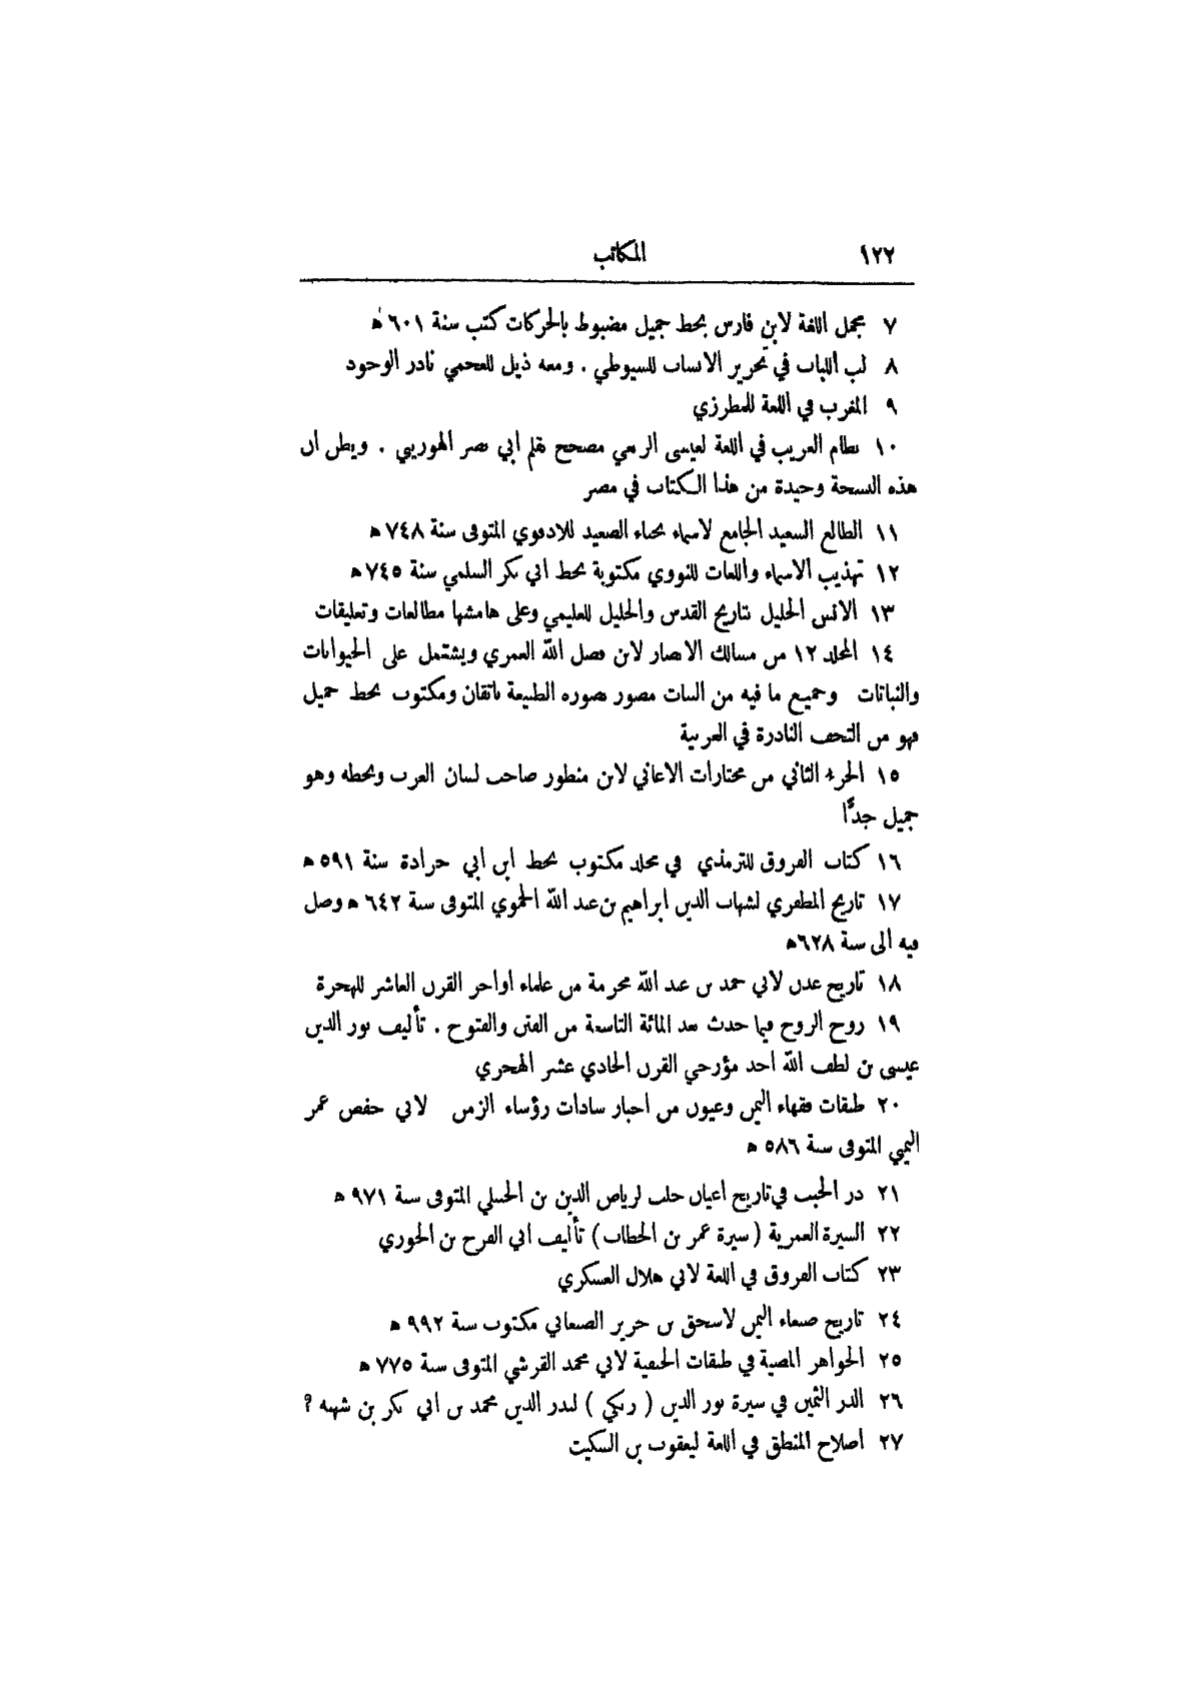 ١٢٢ المكاتب
٧ مجمل اللغة لابن فارس بخط جميل مضبوط بالحركات كتب سنة ٦٠١ ه
٨ لب اللباب في تحرير الانساب للسيوطي . ومعه ذيل للعجمي نادر الوجود
٩ المغرب في اللغة للمطرزي
١٠ نظام الغريب في اللغة لعيسى الربعي مصحح بقلم ابي نصر الهوريني . ويظن ان
هذه النسخة وحيدة من هذا الكتاب في مصر
١١ الطالع السعيد الجامع لاسماء نجباء الصعيد للادفوي المتوفى سنة ٧٤٨ ه
١٢ تهذيب الاسماء واللغات للنووي مكتوبة بخط ابي بكر السلمي سنة ٧٤٥ ه
١٣ الانس الجليل بتاريخ القدس والخليل للعليمي وعلى هامشها مطالعات وتعليقات
١٤ المجلد ١٢ من مسالك الابصار لابن فضل الله العمري ويشتمل على الحيوانات
والنباتات وجميع ما فيه من النبات مصور بصوره الطبيعة باتقان ومكتوب بخط جميل
فهو من التحف النادرة في العربية
١٥ الجزء الثاني من مختارات الاغاني لابن منظور صاحب لسان العرب وبخطه وهو
جميل جدًّا
١٦ كتاب الفروق للترمذي في مجلد مكتوب بخط ابن ابي جرادة سنة ٥٩١ ه
١٧ تاريخ المظفري لشهاب الدين ابراهيم بن عبد الله الحموي المتوفى سنة ٦٤٢ ه وصل
فيه الى سنة ٦٢٨ه
١٨ تاريخ عدن لابي حمد بن عبد الله مخرمة من علماء اواخر القرن العاشر للهجرة
١٩ روح الروح فيما حدث بعد المائة التاسعة من الفتن والفتوح . تأليف نور الدين
عيسى بن لطف الله احد مؤرخي القرن الحادي عشر الهجري
٢٠ طبقات فقهاء اليمن وعيون من اخبار سادات رؤساء الزمن لابي حفص عمر
اليمني المتوفى سنة ٥٨٦ ه
٢١ در الحبب في تاريخ اعيان حلب لرياض الدين بن الحنبلي المتوفى سنة ٩٧١ ه
٢٢ السيرة العمرية ( سيرة عمر بن الخطاب ) تأليف ابي الفرج بن الجوزي
٢٣ كتاب الفروق في اللغة لابي هلال العسكري
٢٤ تاريخ صنعاء اليمن لاسحق بن جرير الصنعاني مكتوب سنة ٩٩٢ ه
٢٥ الجواهر المضية في طبقات الحنفية لابي محمد القرشي المتوفى سنة ٧٧٥ ه
٢٦ الدر الثمين في سيرة نور الدين ( زنكي ) لبدر الدين محمد بن ابي بكر بن شهبه ؟
٢٧ اصلاح المنطق في اللغة ليعقوب بن السكيت